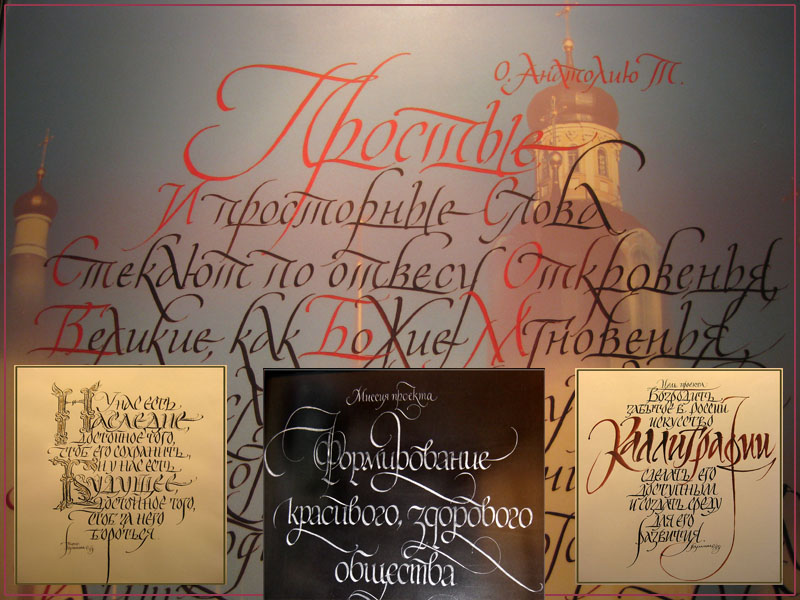 О. Анатолию Т.
Простые
И просторные Слова
Стекают по отвесу Откровенья,
Великие, как Божие Мгновенья,
У нас есть
Наследие
достойное того,
чтоб его сохранить,
и у нас есть
Будущее,
достойное того,
чтоб за него
бороться
Миссия проекта
Формирование
красивого, здорового
общества
Цель проекта
Возродить
забытое в России
искусство
Каллиграфии,
сделать его
доступным
и создать среду
для его
развития